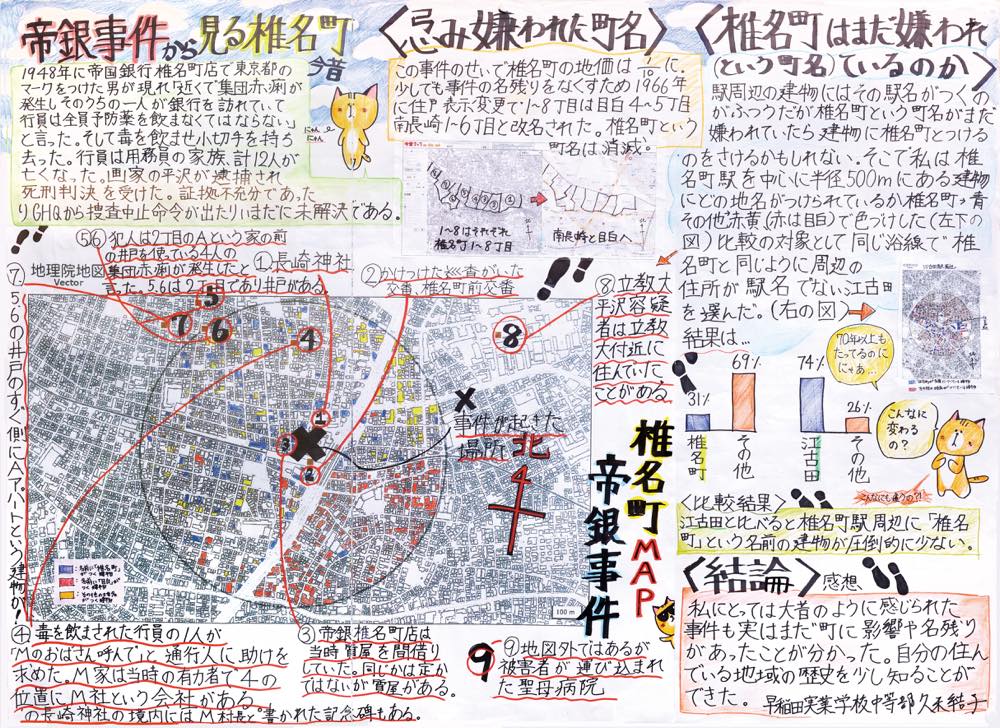 帝銀事件から見る椎名町
今昔
1948年に帝国銀行椎名町店で東京都の
マークをつけた男が現れ「近くで集団赤痢が
発生しそのうちの一人が銀行を訪れていて
行員は全員予防薬を飲まなくてはならない」
と言った。そして毒を飲ませ小切手を持ち
去った。行員は用務員の家族、計12人が
亡くなった。画家の平沢が逮捕され
死刑判決を受けた。証拠不充分であた
りGHQから捜査中止命令が出たりいまだに未解決である。
にゃん
にゃん
〈忌み嫌われた町名〉
この事件のせいで椎名町の地価は1/10に。
少しでも事件の名残りをなくすため1966年
に住戸表示変更で1~8丁目は目白4~5丁目
南長崎1~6丁目と改名された。椎名町という
町名は消滅。
1~8はそれぞれ
椎名町1~8丁目
南長崎と目白へ
〈椎名町はまだ嫌われ
(という町名)ているのか〉
駅周辺の建物にはその駅名がつくの
がふつうだが椎名町という町名がまだ
嫌われていたら建物に椎名町とつける
のをさけるかもしれない。そこで私は椎
名町駅を中心に半径500mにある建物
にどの地名がつけられているか椎名町→青
その他赤黄(赤は目白)で色つけした(左下の
図)比較の対象として同じ沿線で椎
名町と同じように周辺の
住所が駅名でない江古田
を選んだ。(右の図)
結果は…
31%
69%
74%
26%
椎名町
その他
江古田
その他
70年以上も
たってるのに
にゃあ…
こんなに
変わる
の?
こんなにも違うの?!
〈比較結果〉
江古田と比べると椎名町駅周辺に「椎名
町」という名前の建物が圧倒的に少ない。
〈結論〉感想
私にとっては大昔のように感じられた
事件も実はまだ町に影響や名残り
があったことが分かった。自分の住ん
でいる地域の歴史を少し知ることが
できた。
早稲田実業学校中等部久米結子
⑤⑥犯人は2丁目のAという家の前
の井戸を使っている4人の
集団赤痢が発生したと
言った。5.6は2丁目であり井戸がある。
地理院地図
Vector
①長崎神社
②かけつけた巡査がいた
交番、椎名町前交番
⑧立教大
平沢容疑
者は立教
大付近に
住んでいた
ことがある。
⑦
5、6の井戸のすぐ側にAアパートという建物が!
5
7
6
4
8
1
3
2
×
事件が起きた
場所
北
4
100m
椎名町MAP
帝銀事件
④毒を飲まされた行員の1人が
「Mのおばさん呼んで」と通行人に助けを
求めた。M家は当時の有力者で4の
位置にM社という会社がある
①の長崎神社の境内にはM村長と書かれた記念碑もある。
③帝銀椎名町店は
当時質屋を間借り
していた。同じかは定か
ではないが質屋がある。
9
⑨地図外ではあるが
被害者が運び込まれ
た聖母病院